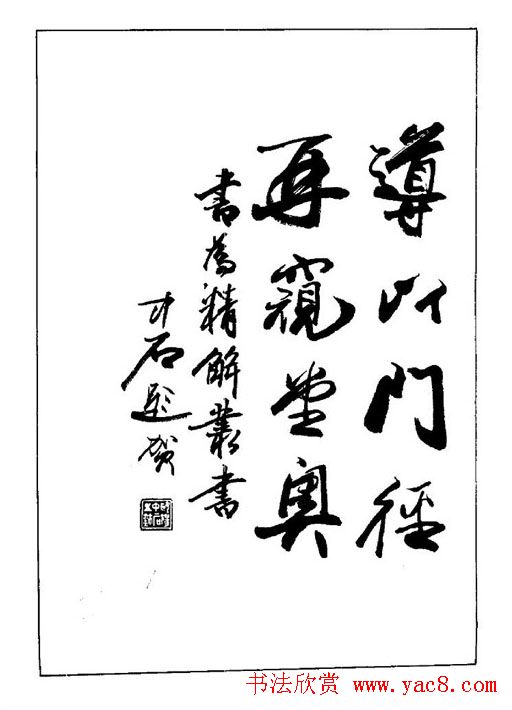 導以門徑
再窺堂奧
書為精解叢書
才石題賀
书法欣赏 www.yac8.com